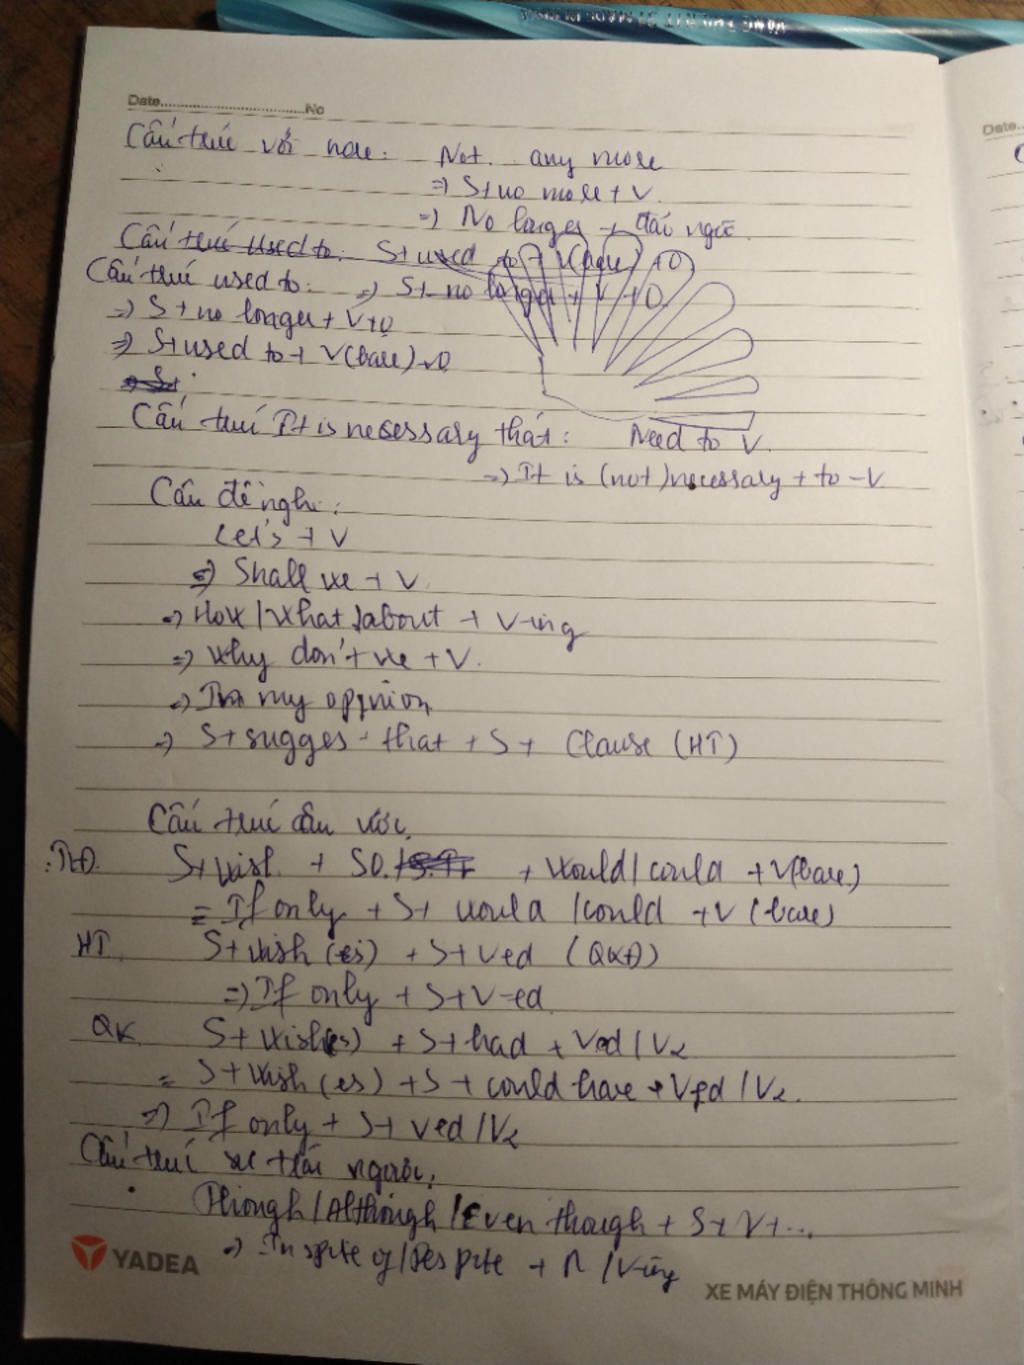 Date.......................No
Date..
Cấu trúc với more: Not.. any more
=> S + no more + V.
=> No longer + đảo ngữ
Cấu trúc used to: S + used to + V(bare) + O
Cấu trúc used to: => S + no longer + V + O
=> S + no longer + V + O
=> S + used to + V(bare) + O
Cấu trúc It is necessary that: Need to V.
=> It is (not) necessary + to - V
Câu đề nghị:
Let's + V
=> Shall we + V.
=> How / What / about + V-ing
=> Why don't we + V.
=> In my opinion
=> S + sugges - that + S + Clause (HT)
Cấu trúc câu ước.
TLĐ. S + wish + SO. + would / could + V(bare)
= If only + S + would / could + V (bare)
HT. S + wish (es) + S + Ved (QKĐ)
=> If only + S + V-ed
QK S + wish(es) + S + had + Ved / V2
= S + wish (es) + S + could have + Ved / V2.
=> If only + S + Ved / V2
Cấu trúc sự trái ngược.
Though / Although / Even though + S + V + ...
=> In spite of / Despite + N / V-ing
YADEA
XE MÁY ĐIỆN THÔNG MINH